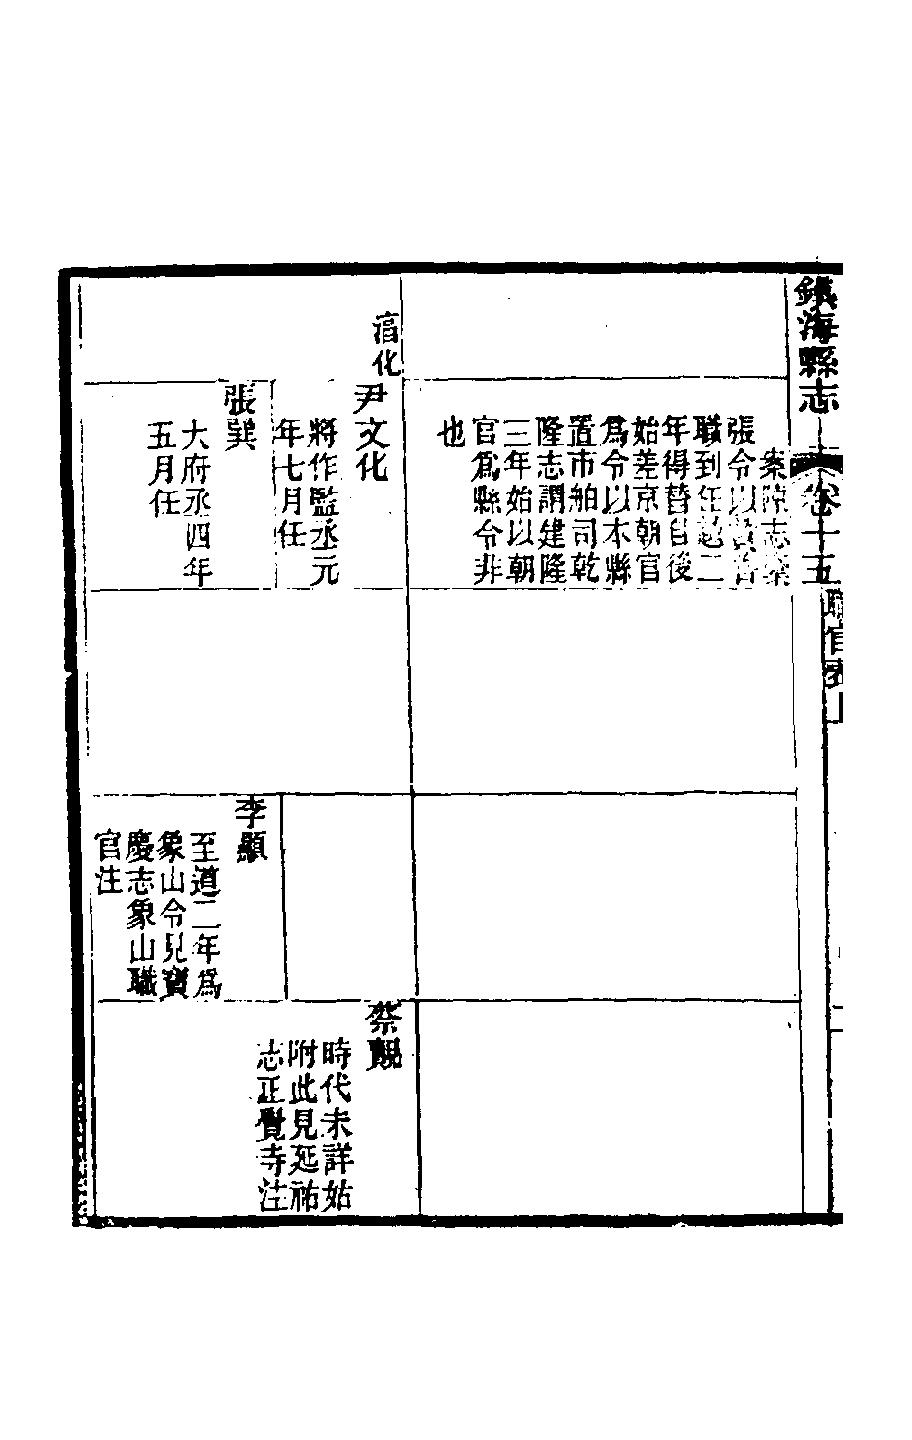 鎮海縣志
卷十五
職官表上
案陳志案
張令以
職到任逾二
年得替自後
始差京朝官
爲令以本縣
置市舶司乾
隆志謂建隆
三年始以朝
官爲縣令非
也
湻化
尹文化
將作監丞元
年七月任
張巽
大府丞四年
五月任
李顯
至道二年爲
象山令見寶
慶志象山職
官注
蔡覿
時代未詳姑
附此見延祐
志正覺寺注